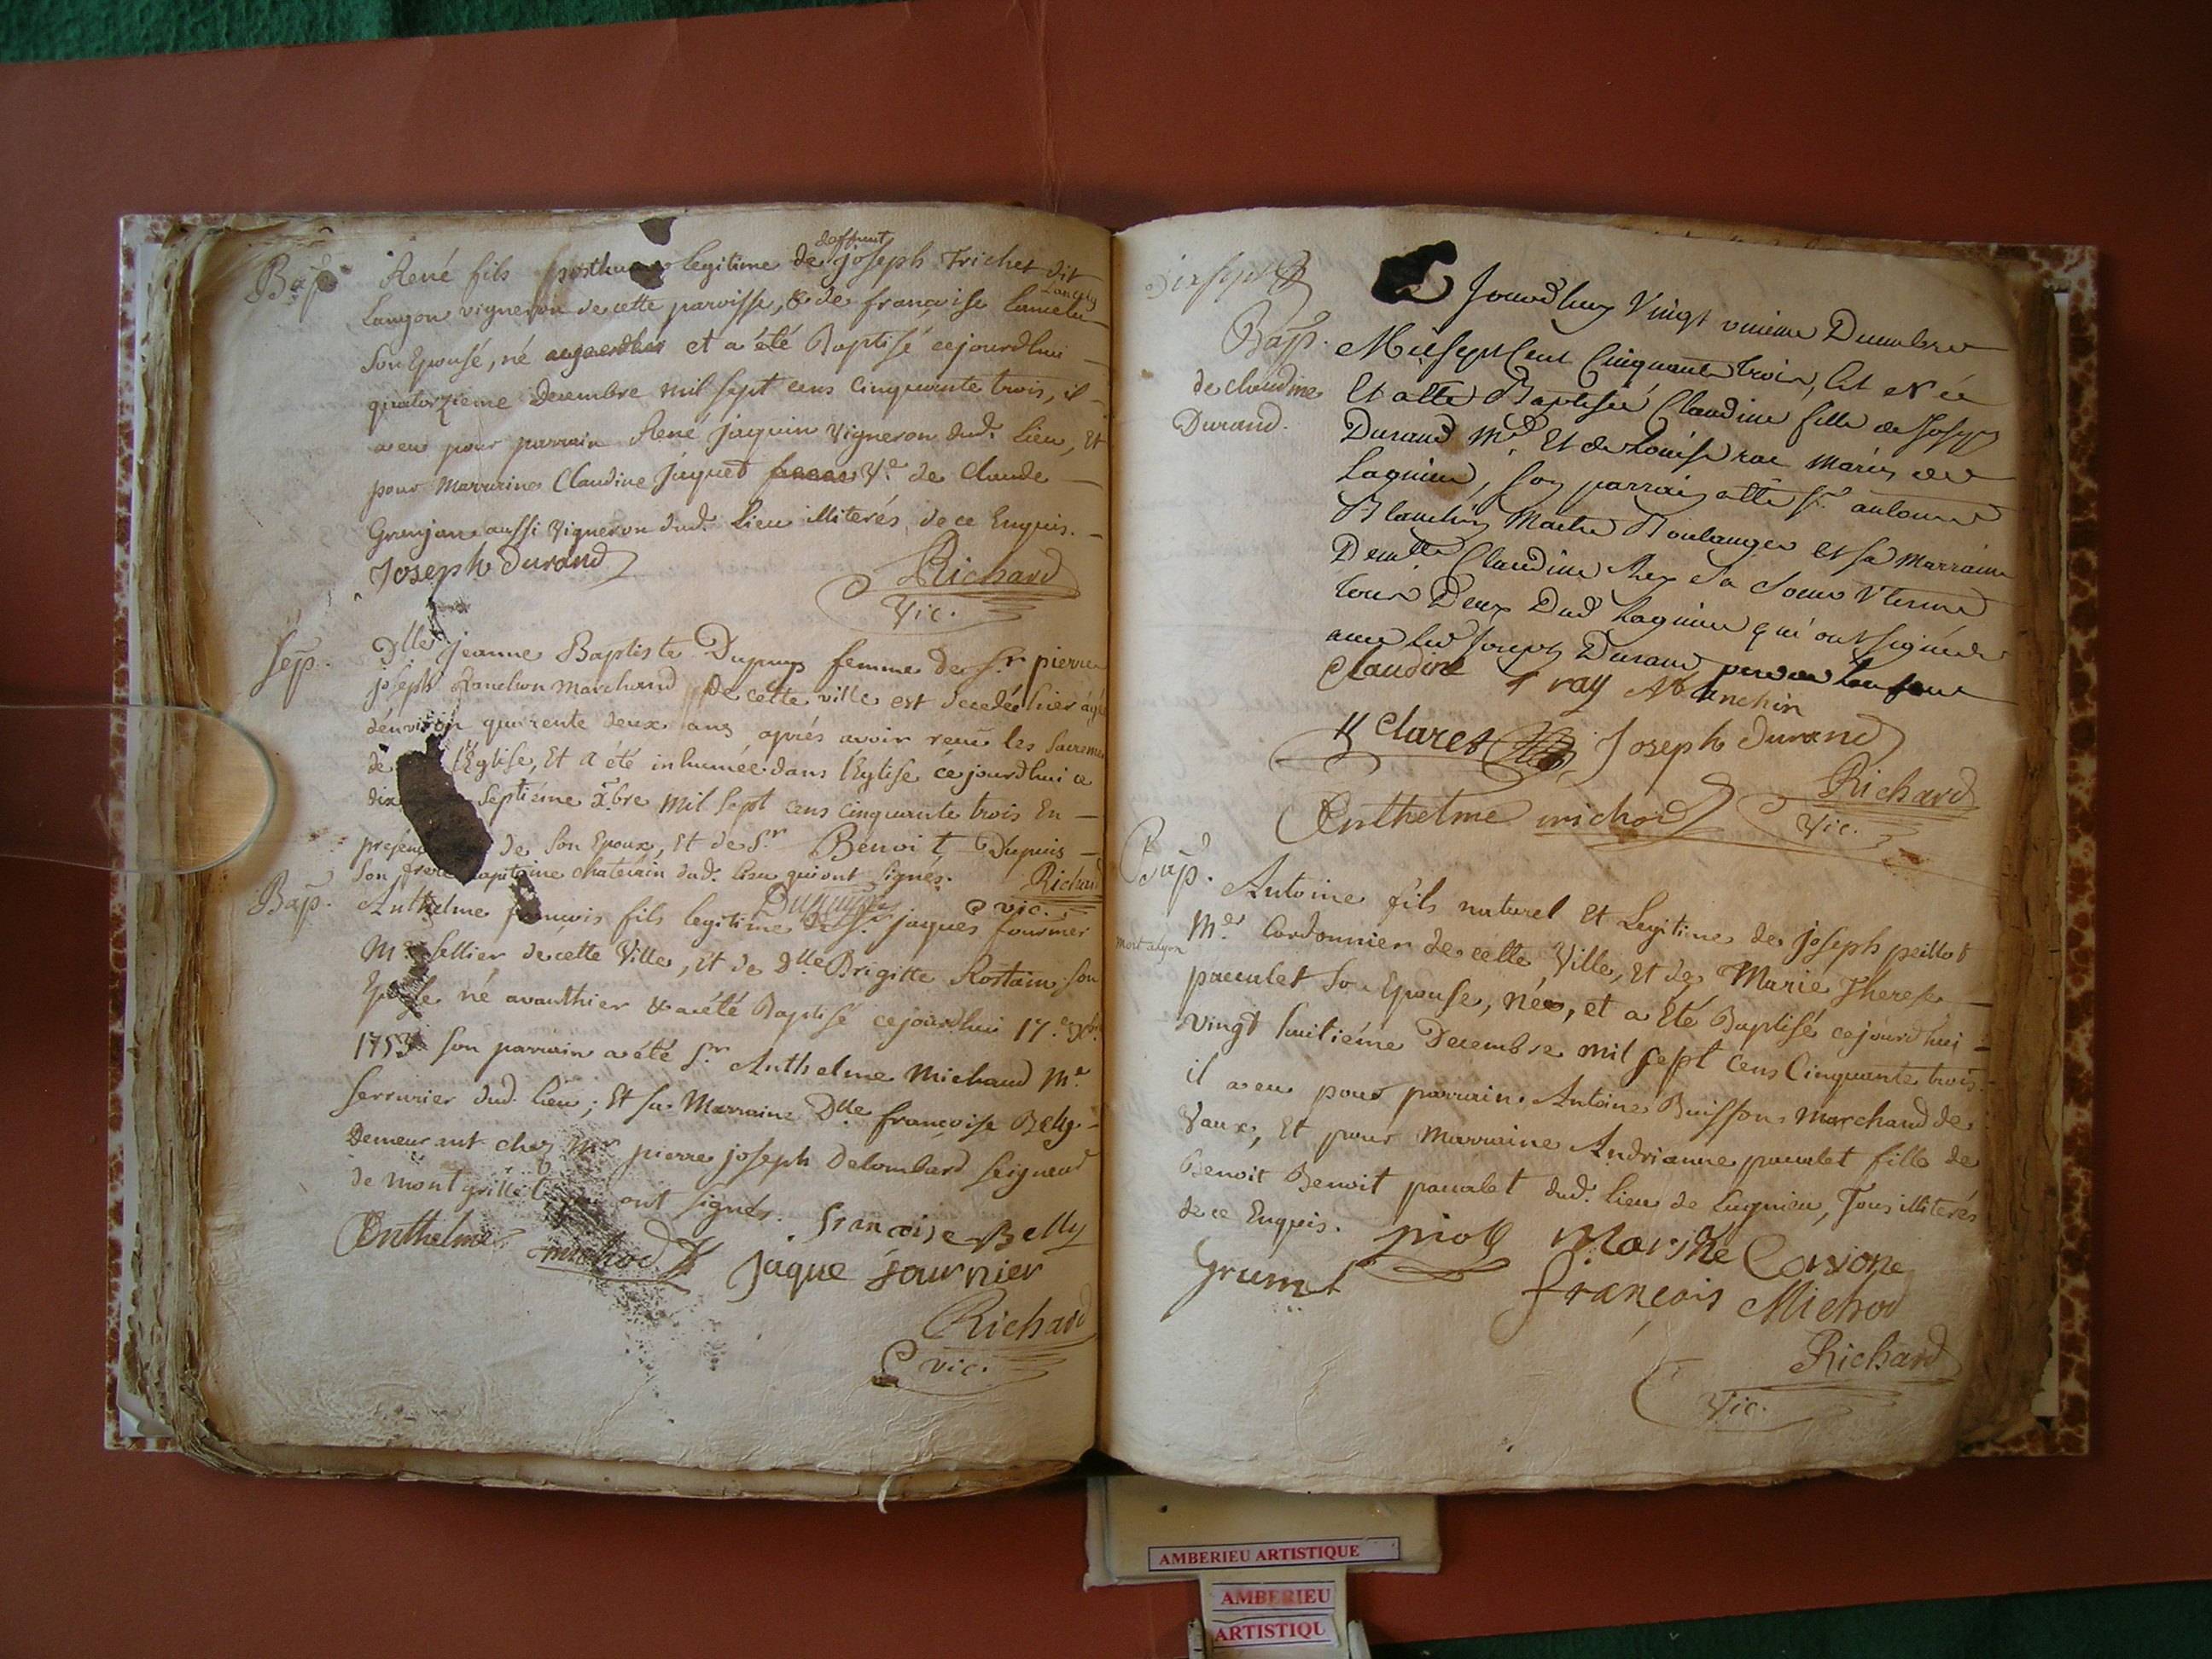 Bap.
René fils posthume legitime de deffunt joseph Trichet dit
Langon vigneron de cette paroisse, & de françoise
Son Epousé, né et a été Baptisé cejourdhui
quatorzieme Decembre mil sept cens cinquante trois, il
a eu pour parrain René jaquin Vigneron dud. Lieu, Et
pour Marraine Claudine jaquet Ve. de Claude
Granjan aussi Vigneron dud. Lieu illiterés de ce Enquis.
Joseph durand
Richard
Vic.
Sep.
Dlle jeanne Baptiste Dupuys femme de Sr. pierre
joseph marchand de cette ville est decedée hier agée
d'environ quarente deux ans après avoir reçu les Sacremen
de l'Eglise, Et a été inhumée dans l'Eglise cejourdhui
dix septiéme xbre mil sept cens cinquante trois En
presen de Son Epoux, Et de Sr. Benoit Dupuis
Son frere capitaine chatelain dud. lieu qui ont signés.
Richard
vic.
Bap.
Anthelme françois fils legitime de Sr. jaques fournier
Me. Sellier de cette Ville, Et de Dlle Brigitte Rostain son
Epouse né avanthier & a été Baptisé cejourdhui 17e. xbre
1753 son parrain a été Sr. Anthelme Michaud Me.
Serrurier dud. lieu; Et sa Marraine Dlle françoise Belly
Demeurant chez Mr pierre joseph Delombard Seigneur
de montgrillet qui ont signés.
françoise Belly
Enthelme michod
jaque fournier
Richard
vic.
Bap.
de claudine
Durand.
Jourdhuy Vingt uniéme Decembre
Mil sept Cent Cinquante trois, Est Née
Et a été Baptisée Claudine fille de Joseph
Durand Md. Et de Louise rae mariés de
Lagnieu, son parrain a été Sr. antoine
Blanchin Maitre Boulanger et sa Marraine
Demlle Claudine Rey sa Soeur Uterine
tous Deux Dud Lagnieu qui ont signés
avec led Joseph Durand
Claudine ray Blanchin
Claret
Joseph durand
Enthelme michod
Richard
Vic.
Bap.
mort a lyon
Antoine fils naturel Et Legitime de joseph peillot
Me. Cordonnier de cette Ville, Et de Marie Therese
pacalet Son Epouse, né, et a Eté Baptisé cejourdhui
vingt huitiéme Decembre mil sept cens Cinquante trois.
il a eu pour parrain Antoine Buisson Marchand de
Vaux, Et pour Marraine Andrianne pacalet fille de
Benoit Benoit pacalet dud. lieu de Lagnieu, Tous illiterés
de ce Enquis.
françois Michod
Richard
Vic.
AMBERIEU ARTISTIQUE
AMBERIEU
ARTISTIQU